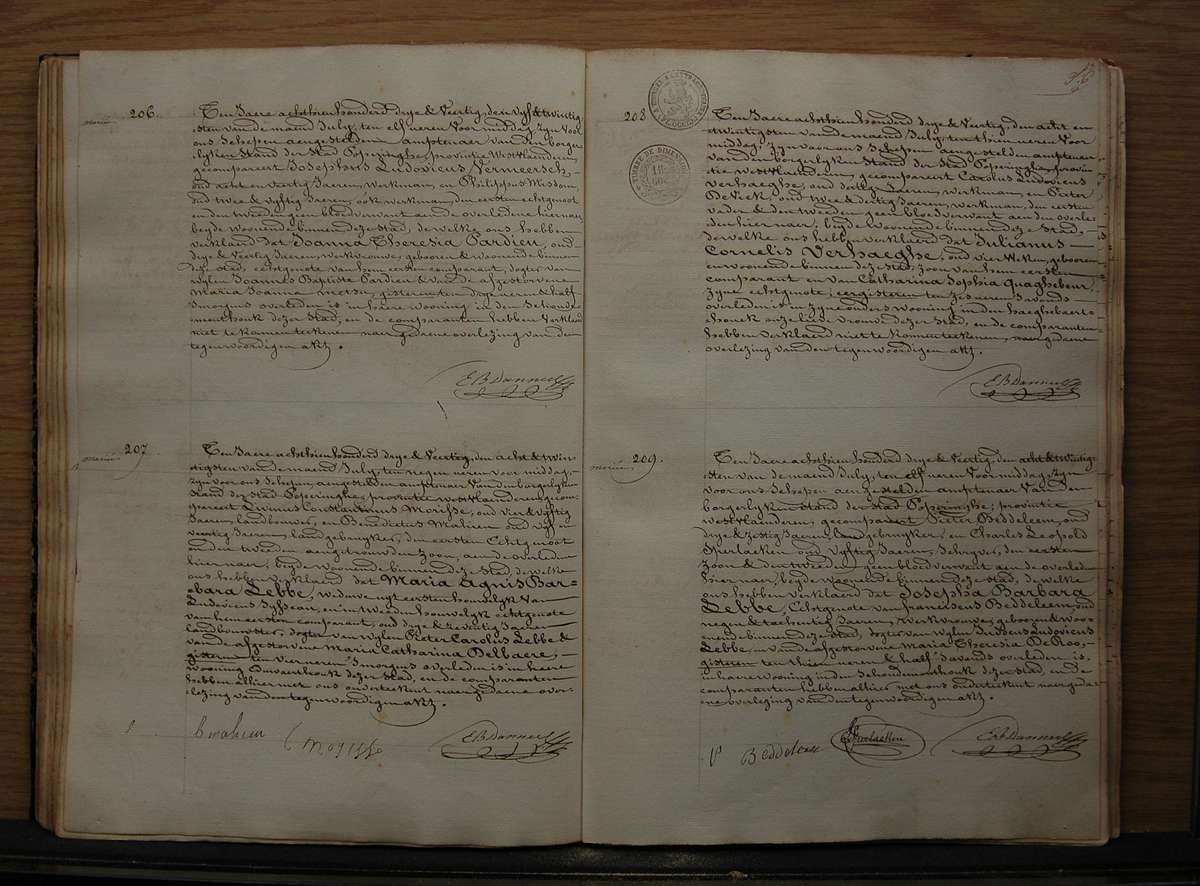 206.
Ten Jaere achthien honderd drye & Veertig, den vyf & twintig-
sten van de maend July, ten elf uren Voor middag, zyn voor
ons Schepen aengestelden amptenaer van den borge-
lyken Stand der Stad Poperinghe, provintie Westvlaenderen,
gecompareert Josephus Ludovicus Vermeersch,
oud acht en veertig Jaeren, werkman, en Philippus Wisdom,
oud twee & vyftig Jaeren, ook werkman, den eersten echtgenoot
en den tweeden geen bloedverwant aen de overledene hiernaer,
beyde woonende binnen deze Stad, dewelke ons hebben
verklaerd dat Joanna Theresia Pardieu, oud
drye & veertig Jaeren, werkvrouwe, geboren & woonende binnen
deze Stad, echtgenote van hem eersten comparant, dogter van
wylen Joannes Baptiste Pardieu & van de afgestorvene
Maria Joanna gisteren ten drye uren & half
Smorgens overleden is in haere wooning in den Schoude-
monthouk dezer Stad, en de comparanten hebben Verklaerd
niet te konnen teekenen naer gedaene overlezing van den
tegenwoordigen akt.
207.
Ten Jaere achthien honderd drye & Veertig, den acht & twin-
tigsten van de maend July, ten negen uren voor middag,
zyn voor ons Schepen, aengestelden amptenaer Van den borgelyken
Stand der Stad Poperinghe, provintie westvlaenderen, gecom-
pareert Livinus Constantinus Morisse, oud vier & vyftig
Jaeren, landbouwer, en Benedictus Mahieu oud vyf en
veertig Jaeren, landgebruyker, den eersten Echtgenoot
en den tweeden aengetrouwden zoon, aen de overledene
hiernaer, beyde woonende binnen deze Stad, dewelke
ons hebben verklaerd dat Maria Agnis Bar-
bara Lebbe, weduwe uyt eersten houwelyk Van
Ludovicus en in tweeden houwelyk echtgenote
van hem eersten comparant, oud drye & zeventig Jaeren
landbouwster, dogter van wylen Pieter Carolus Lebbe &
van de afgestorvene Maria Catharina Delbaere,
gisteren ten vier uren Smorgens overleden is in haere
wooning dezer Stad, en de comparanten
hebben alhier met ons onderteekent naer gedaene over-
lezing van den tegenwoordigen akt.
208
Ten Jaere achthien honderd drye & Veertig, den acht en
twintigsten van de maend July, ten thien uren Voor
middag, zyn voor ons Schepen, aengestelden amptenaer
van den borgerlyken Stand der Stad Poperinghe, provin-
tie westvlaenderen, gecompareert Carolus Ludovicus
Verhaeghe, oud dertig Jaeren, werkman, en Pieter
De Vick, oud twee & dertig Jaeren, werkman, den eersten
vader & den tweeden geen bloedverwant aen den overle-
den hier naer, beyde woonende binnen deze Stad,
dewelke ons hebben verklaerd dat Julianus
Cornelis Verhaeghe, oud vier Weken, geboren
en woonende binnen deze Stad, zoon van hem eersten
comparant en van Catharina Sophia Quaghebeur,
zyne echtgenote, eergisteren ten zes uren Savonds
overleden is in zyne ouders wooning in den haeghebaert
houck onze lieve vrouwe dezer Stad, en de comparanten
hebben verklaerd niet te konnen teekenen, naer gedaene
overlezing van den tegenwoordigen akt.
209.
Ten Jaere achthien honderd drye & Veertig, den acht & twintig-
sten van de maend July, ten elf uren Voor middag, zyn
voor ons Schepen aengestelden amptenaer Van den
borgerlyken Stand der Stad Poperinghe, provintie
westvlaenderen, gecompareert Pieter Beddeleem, oud
drye & zestig Jaeren, landgebruyker, en Charles Leopold
oud vyftig Jaeren, Schryver, den eersten
zoon & den tweeden geen bloedverwant aen de overledene
hier naer, beyde woonende binnen deze Stad, de welke
ons hebben verklaerd dat Josepha Barbara
Lebbe, Echtgenote van franciscus Beddeleem, oud
negen & tachentig Jaeren, werkvrouwe, geboren & woo-
nende binnen deze Stad, dogter van wylen Ludovicus
Lebbe, en van de afgestorvene Maria Theresia De Roo,
gisteren ten thien uren & half Savonds overleden is,
in haere wooning in den Schoudemonthouk dezer Stad, en de
comparanten hebben alhier met ons onderteekent naer geda-
ene overlezing van den tegenwoordigen akt.
Beddeleem